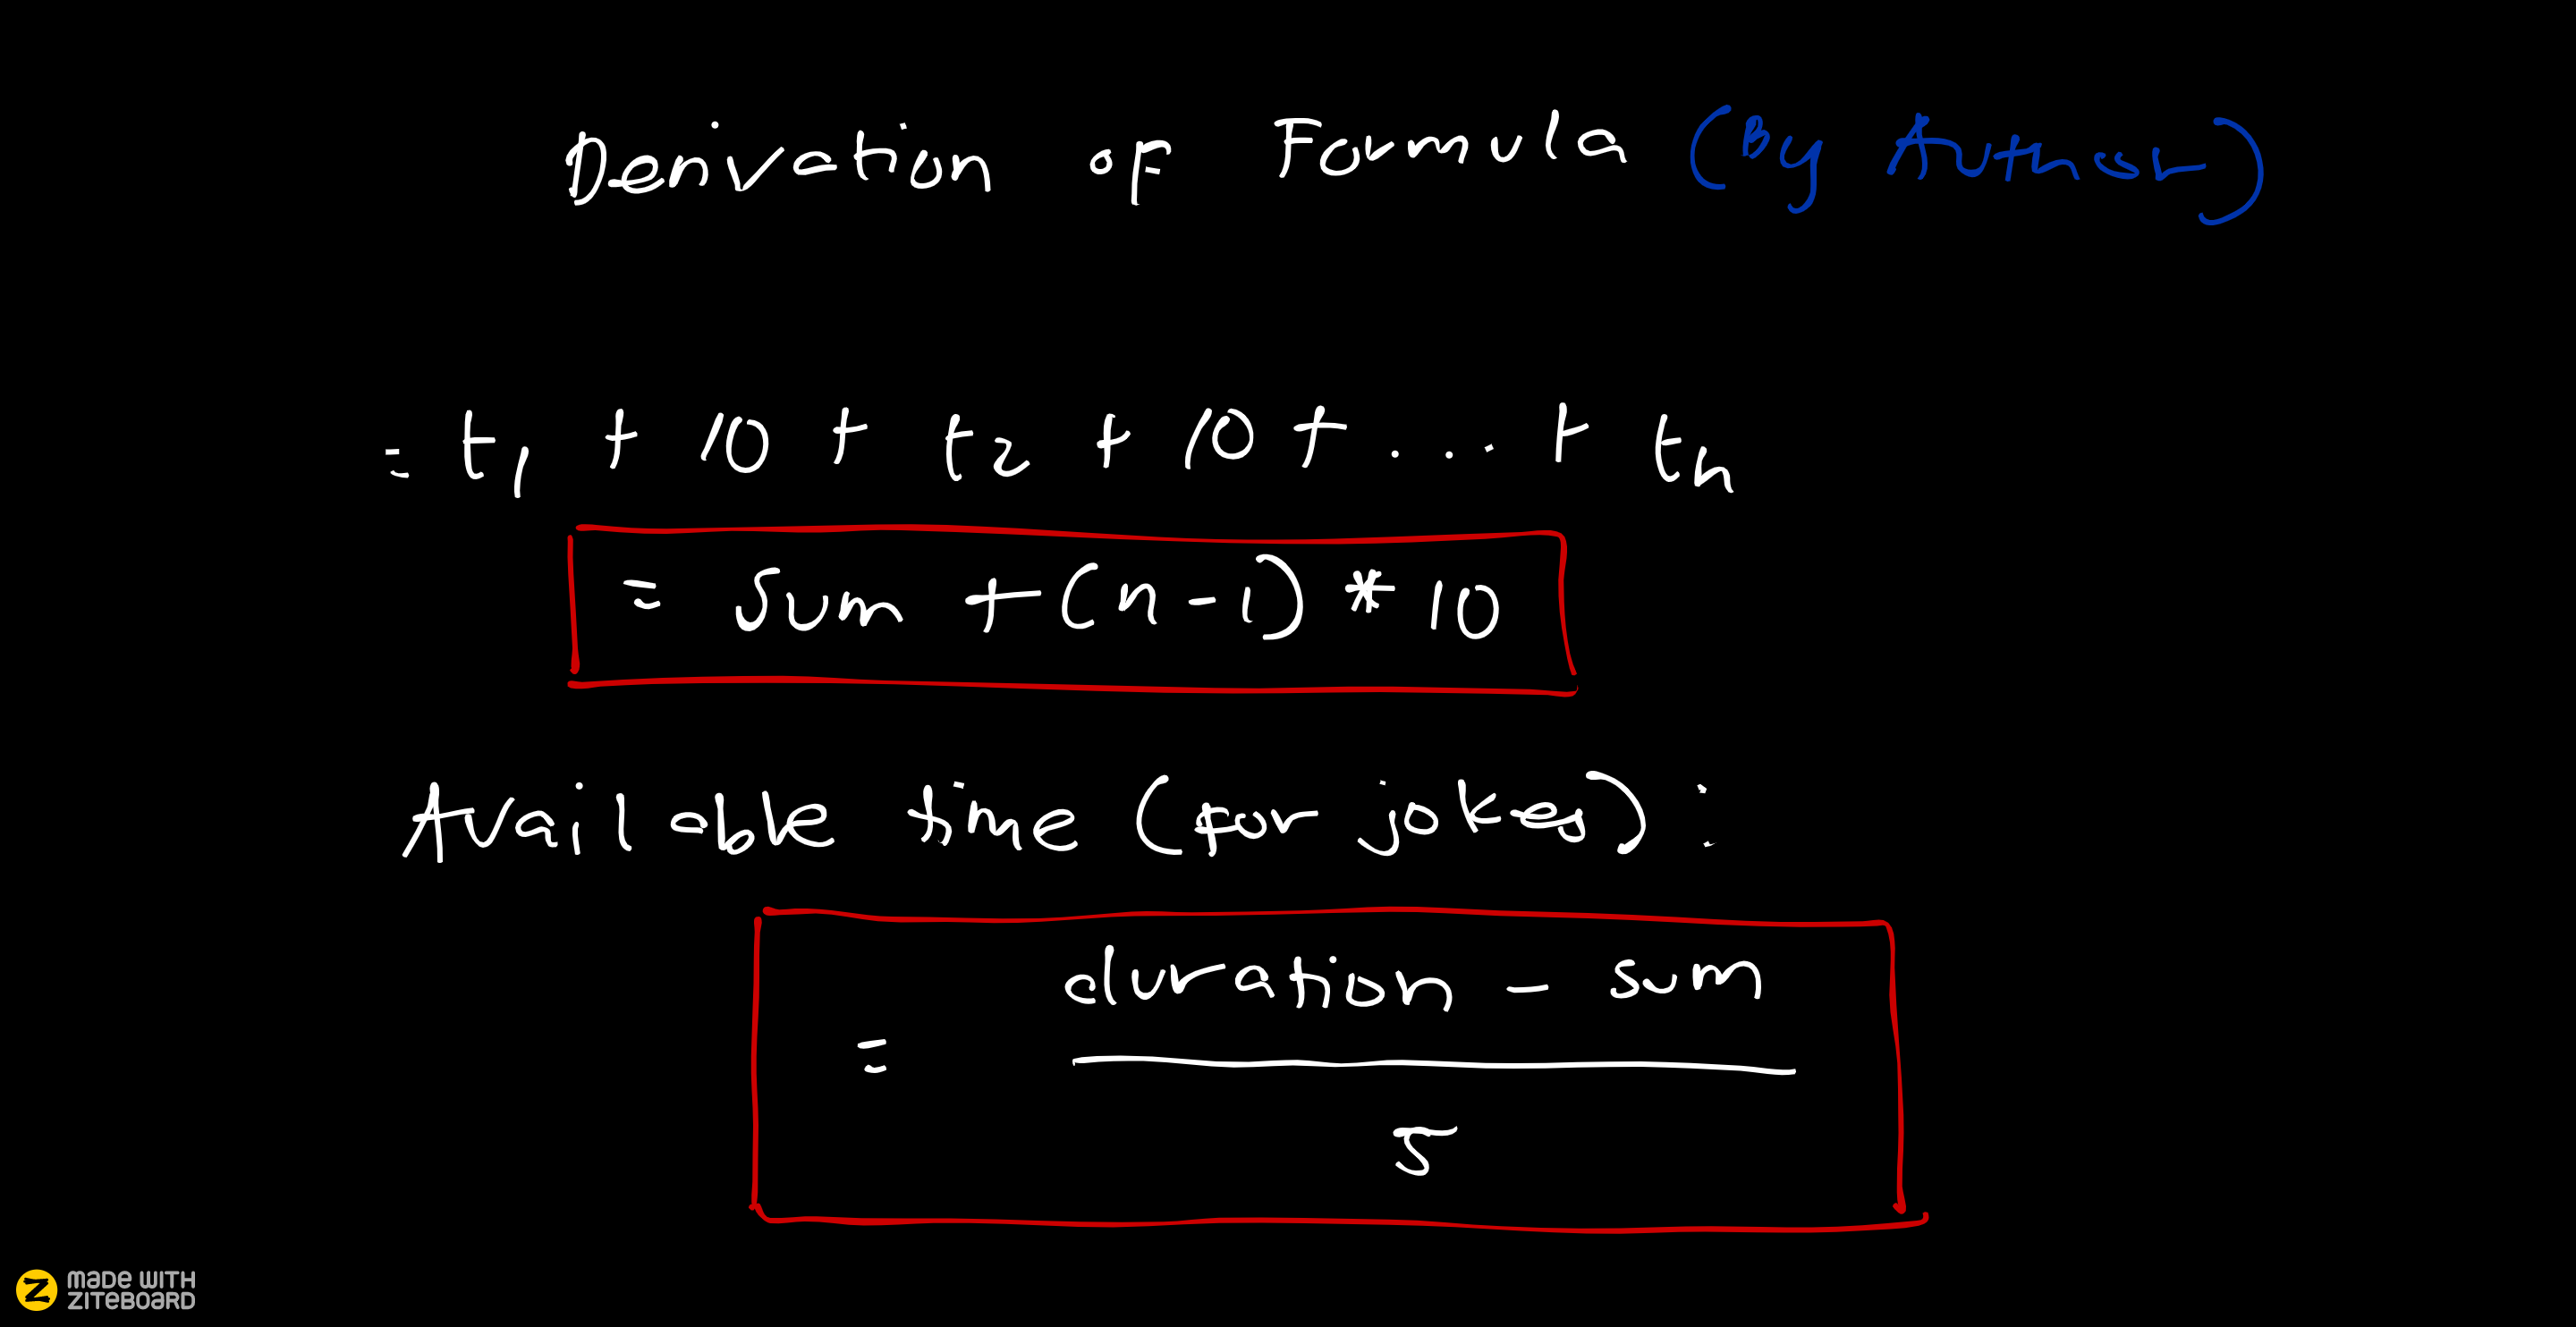 Derivation of Formula (By Author)
= t1 + 10 + t2 + 10 + ... + tn
= Sum + (n-1) * 10
Available time (for jokes):
duration - sum
=
5
MADE WITH
ZITEBOARD